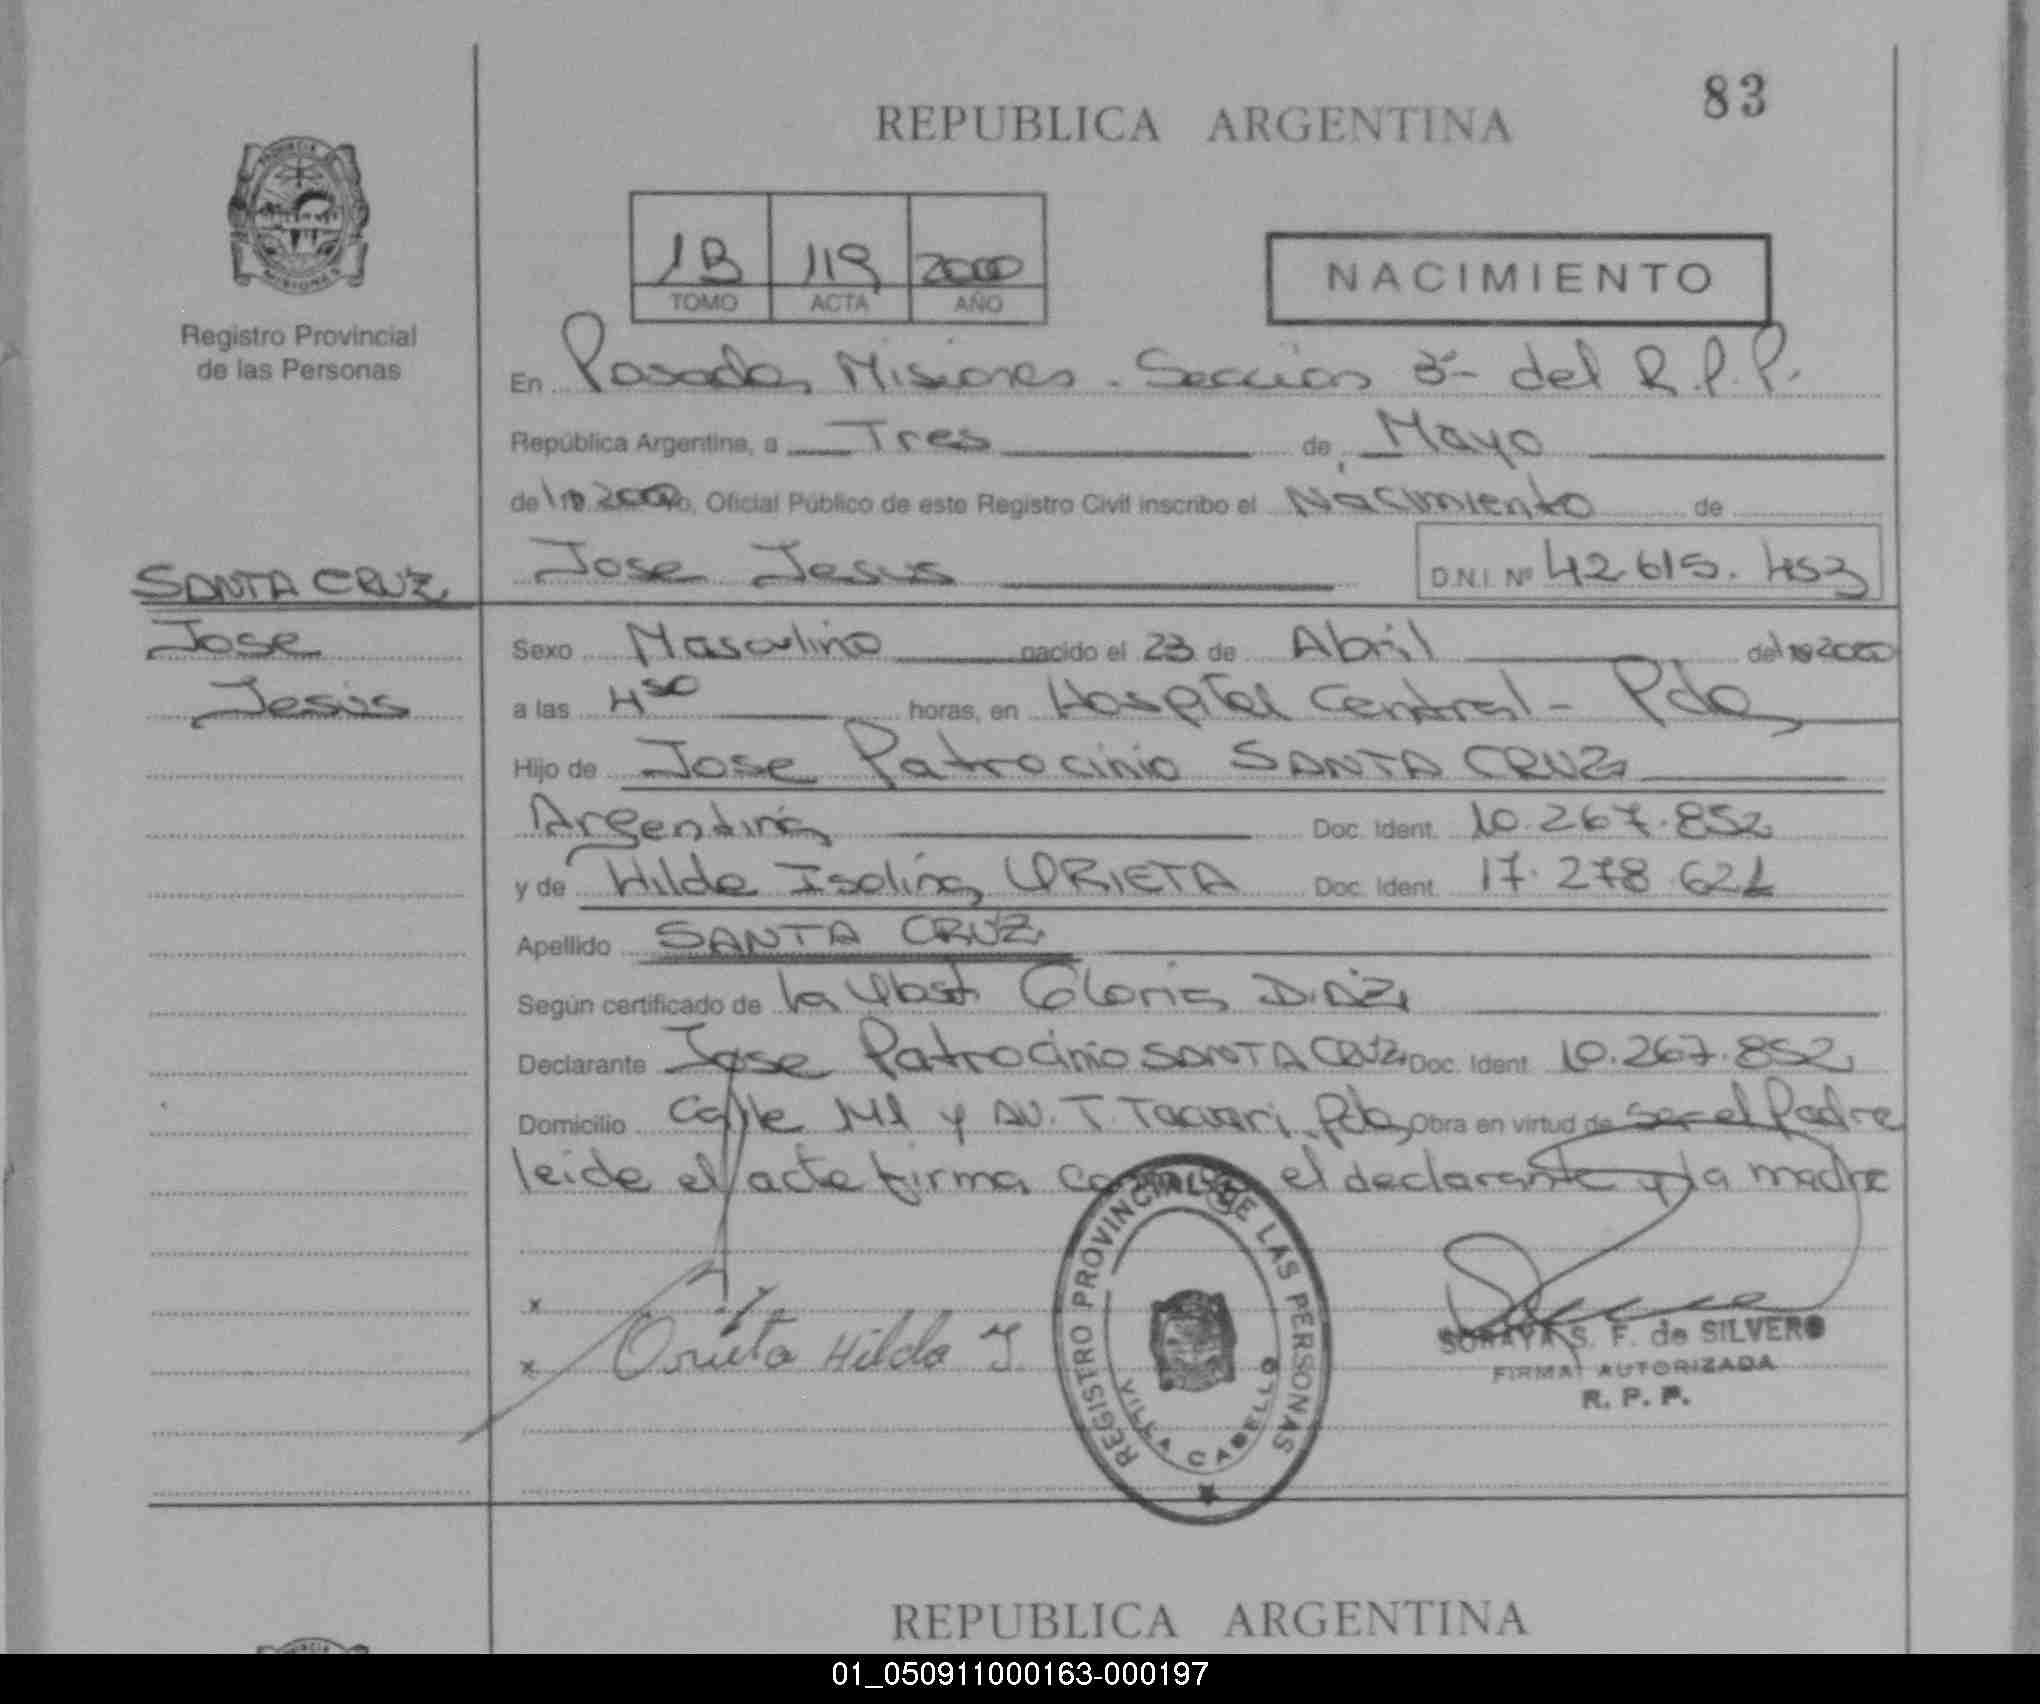 83
REPUBLICA ARGENTINA
PROVINCIA
MISIONES
Registro Provincial
de las Personas
1B 119 2000
TOMO ACTA AÑO
NACIMIENTO
En Posadas Misiones - Sección 3ª del R.P.P.
República Argentina, a Tres de Mayo
de 2000, Oficial Público de este Registro Civil inscribo el Nacimiento de
Jose Jesus D.N.I. Nº 42.615.453
SANTA CRUZ
Jose
Jesús
Sexo Masculino nacido el 23 de Abril del 2000
a las 4 30 horas, en Hospital Central - Pdas
Hijo de Jose Patrocinio SANTA CRUZ
Argentina Doc. Ident. 10.267.852
y de Hilda Isolina, ORIETA Doc. Ident. 17.278.621
Apellido SANTA CRUZ
Según certificado de la Obst. Gloria DIAZ
Declarante Jose Patrocinio SANTA CRUZ Doc. Ident. 10.267.852
Domicilio Calle 141 y AV. T. Tacuari. Pdas Obra en virtud de ser el Padre
leida el acta firma el declarante y la madre
x
x Orieta Hilda I.
REGISTRO PROVINCIAL DE LAS PERSONAS
VILLA CABELLO
SORAYA S. F. de SILVERO
FIRMA AUTORIZADA
R. P. P.
REPUBLICA ARGENTINA
01_050911000163-000197